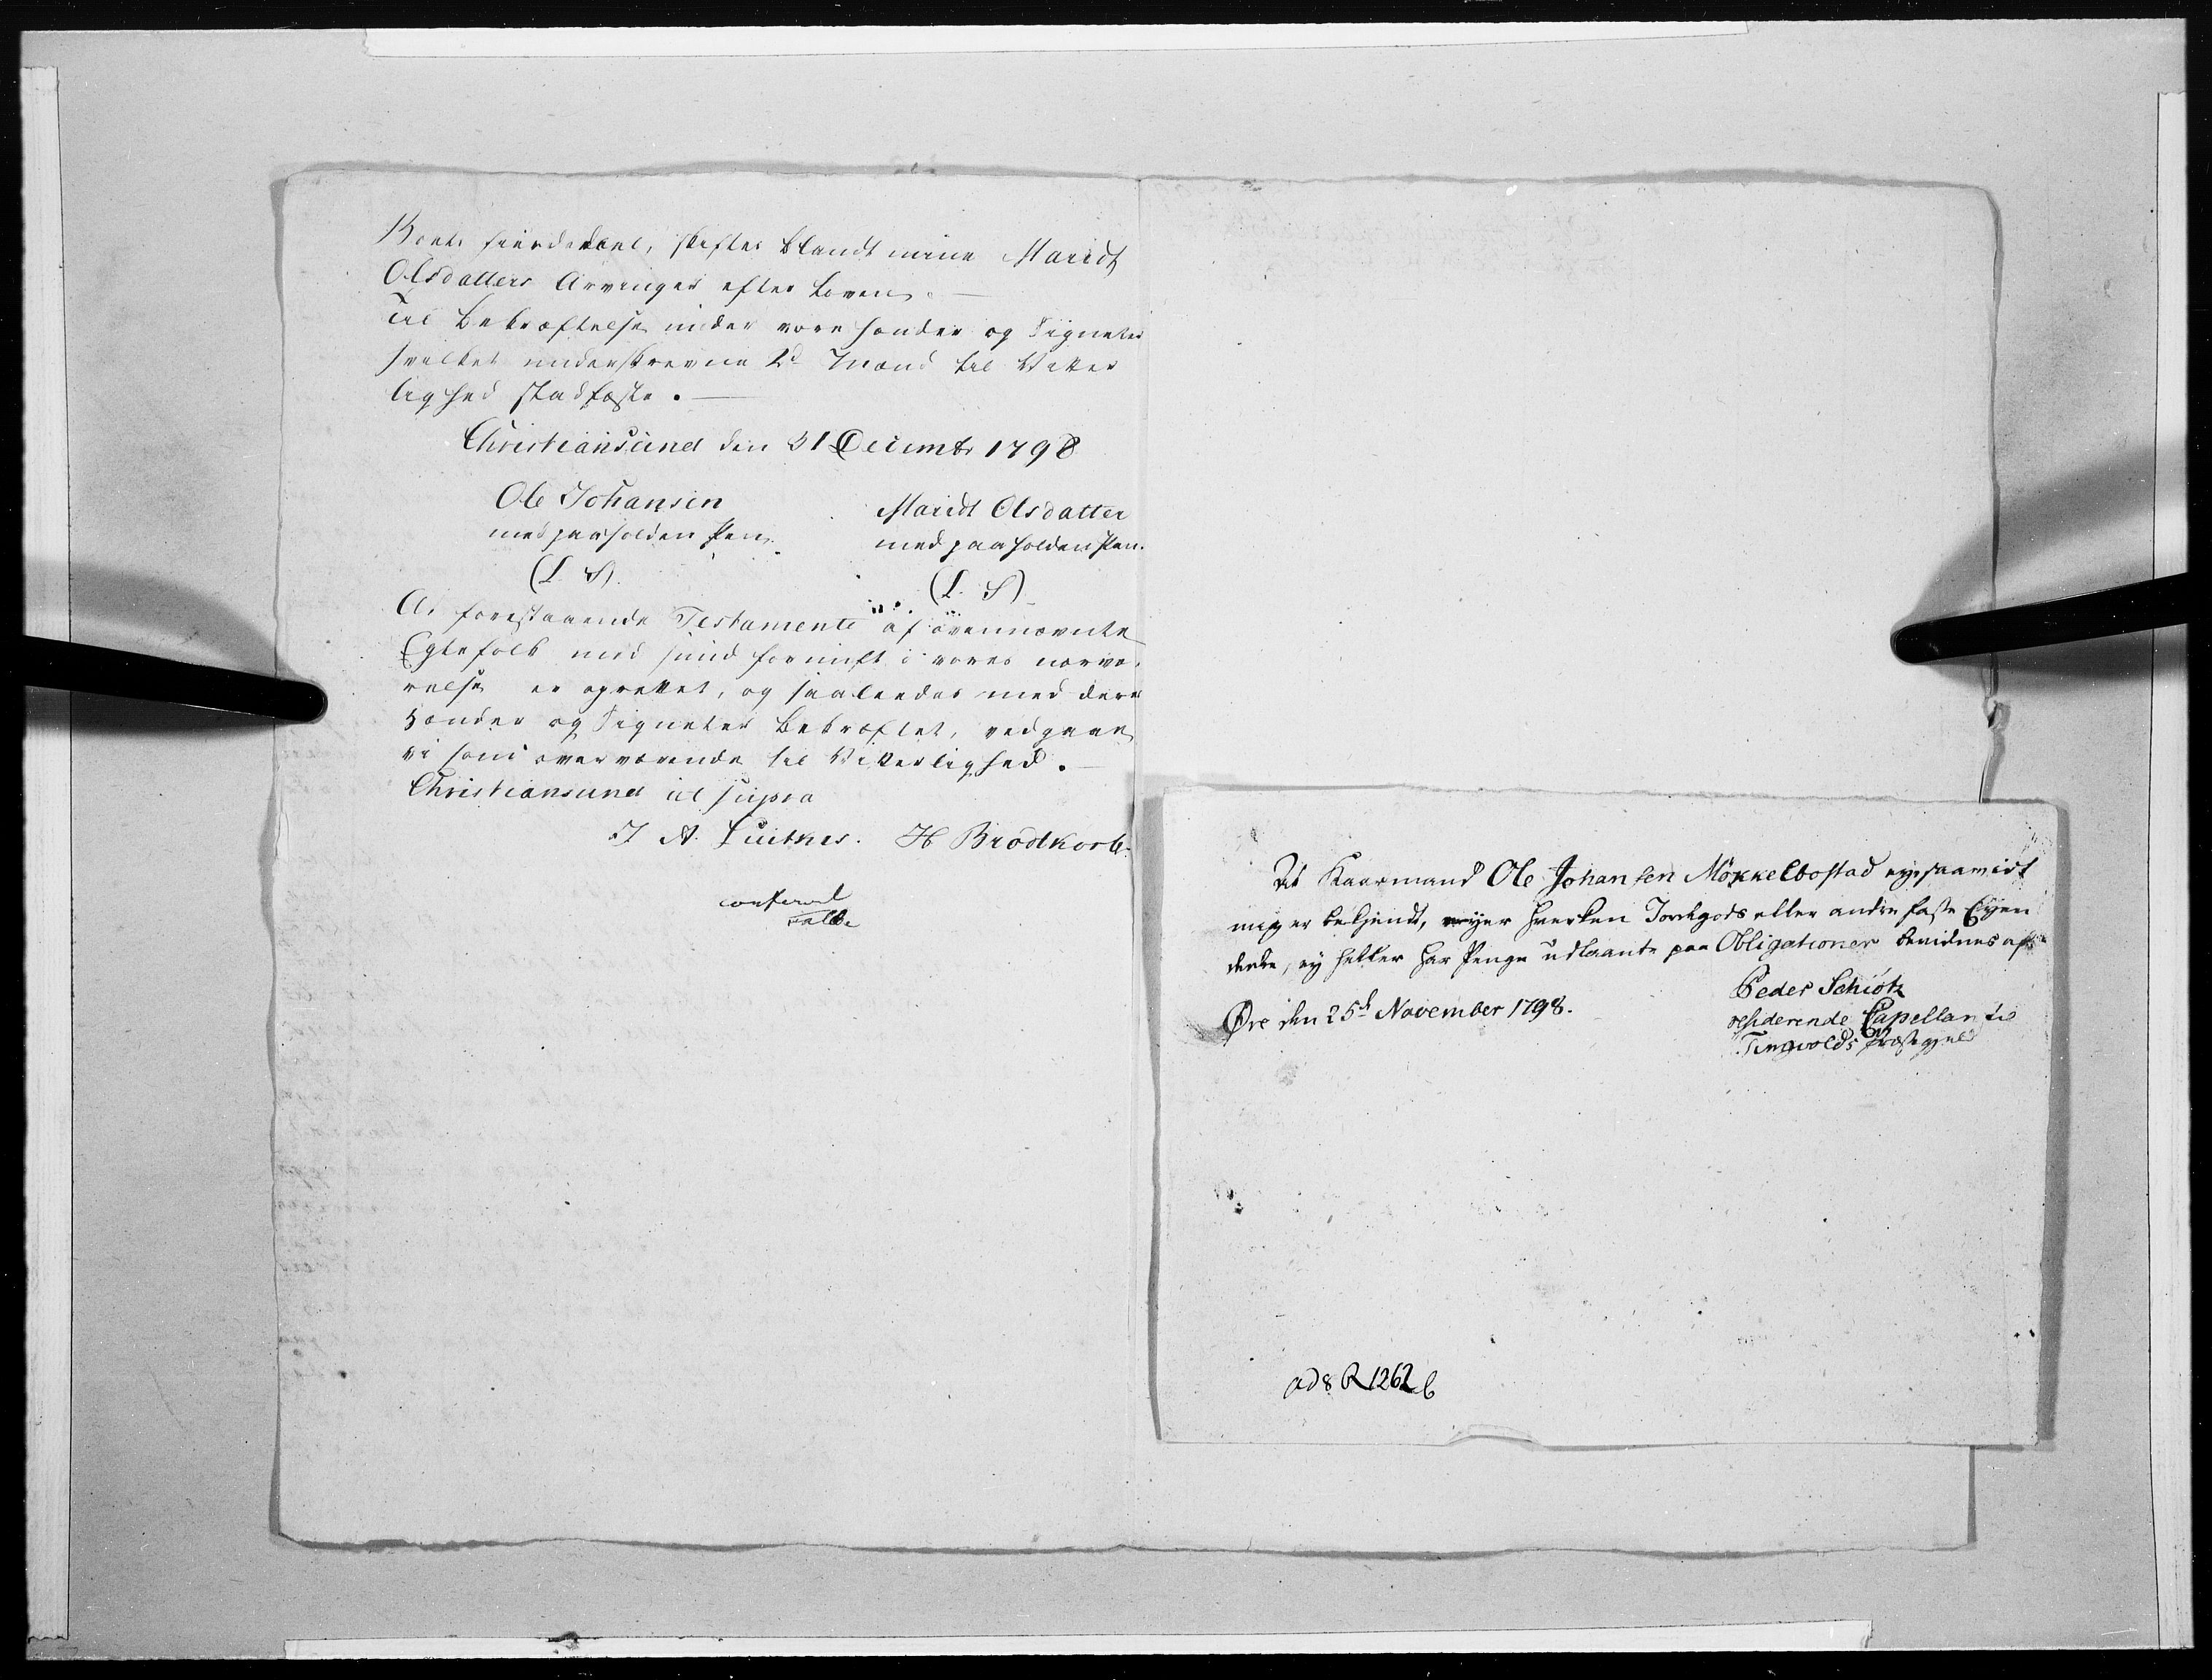 fierdedeel, skiftes blandt mine Maridt
Olsdatters Arvinger efter Loven.
Til Bekræftelse under vore Hænder og Signeter
hvilket underskrevne 2de Mænd til Vitter
lighed stadfæste.
Christiansund den 31 Decembr 1798
Ole Johansen
med paaholden Pen.
(L. S).
Maridt Olsdatter
med paaholden Pen.
(L. S)
At forestaaende Testamente af ovennævnte
Egtefolk med sund fornuft i vores nærvæ-
relse er oprettet, og saaledes med deres
Hænder og Signeter Bekræftet, vedgaaer
vi som overværende til Vitterlighed.
Christiansund ut supra
J A. Luitkes. H Brodtkorb.
confererel
Falbe
At Kaarmand Ole Johansen Mökkelbostad eyesaavidt
mig er bekjendt, eyer hverken Jordegods eller andre faste Eyen
dele, ey heller har Penge udlaante paa Obligationer bevidnes af
Øre den 25de November 1798.
Peder Schiötz
residerende Capellan til
Tingvolds Præstegjeld
ad 8 R 1262 b